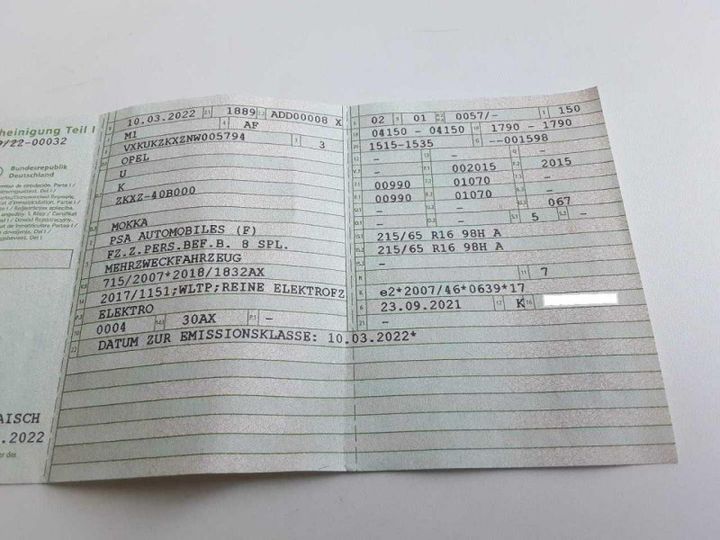 heinigung Teil I
/22-00032
Bundesrepublik
Deutschland
AISCH
.2022
10.03.2022 1889 ADD00008 X
M1 AF
VXKUKZKXZNW005794 3
OPEL
U
K
ZKXZ-40B000
MOKKA
PSA AUTOMOBILES (F)
FZ.Z.PERS.BEF.B. 8 SPL.
MEHRZWECKFAHRZEUG
715/2007*2018/1832AX
2017/1151;WLTP;REINE ELEKTROFZ
ELEKTRO
0004 30AX –
DATUM ZUR EMISSIONSKLASSE: 10.03.2022*
02 01 0057/- 150
04150 – 04150 1790 – 1790
1515-1535 --001598
– – –
– 002015 2015
00990 01070 –
00990 01070 –
– – 067
– – 5 –
215/65 R16 98H A
215/65 R16 98H A
–
– 7
e2*2007/46*0639*17
23.09.2021 K
–